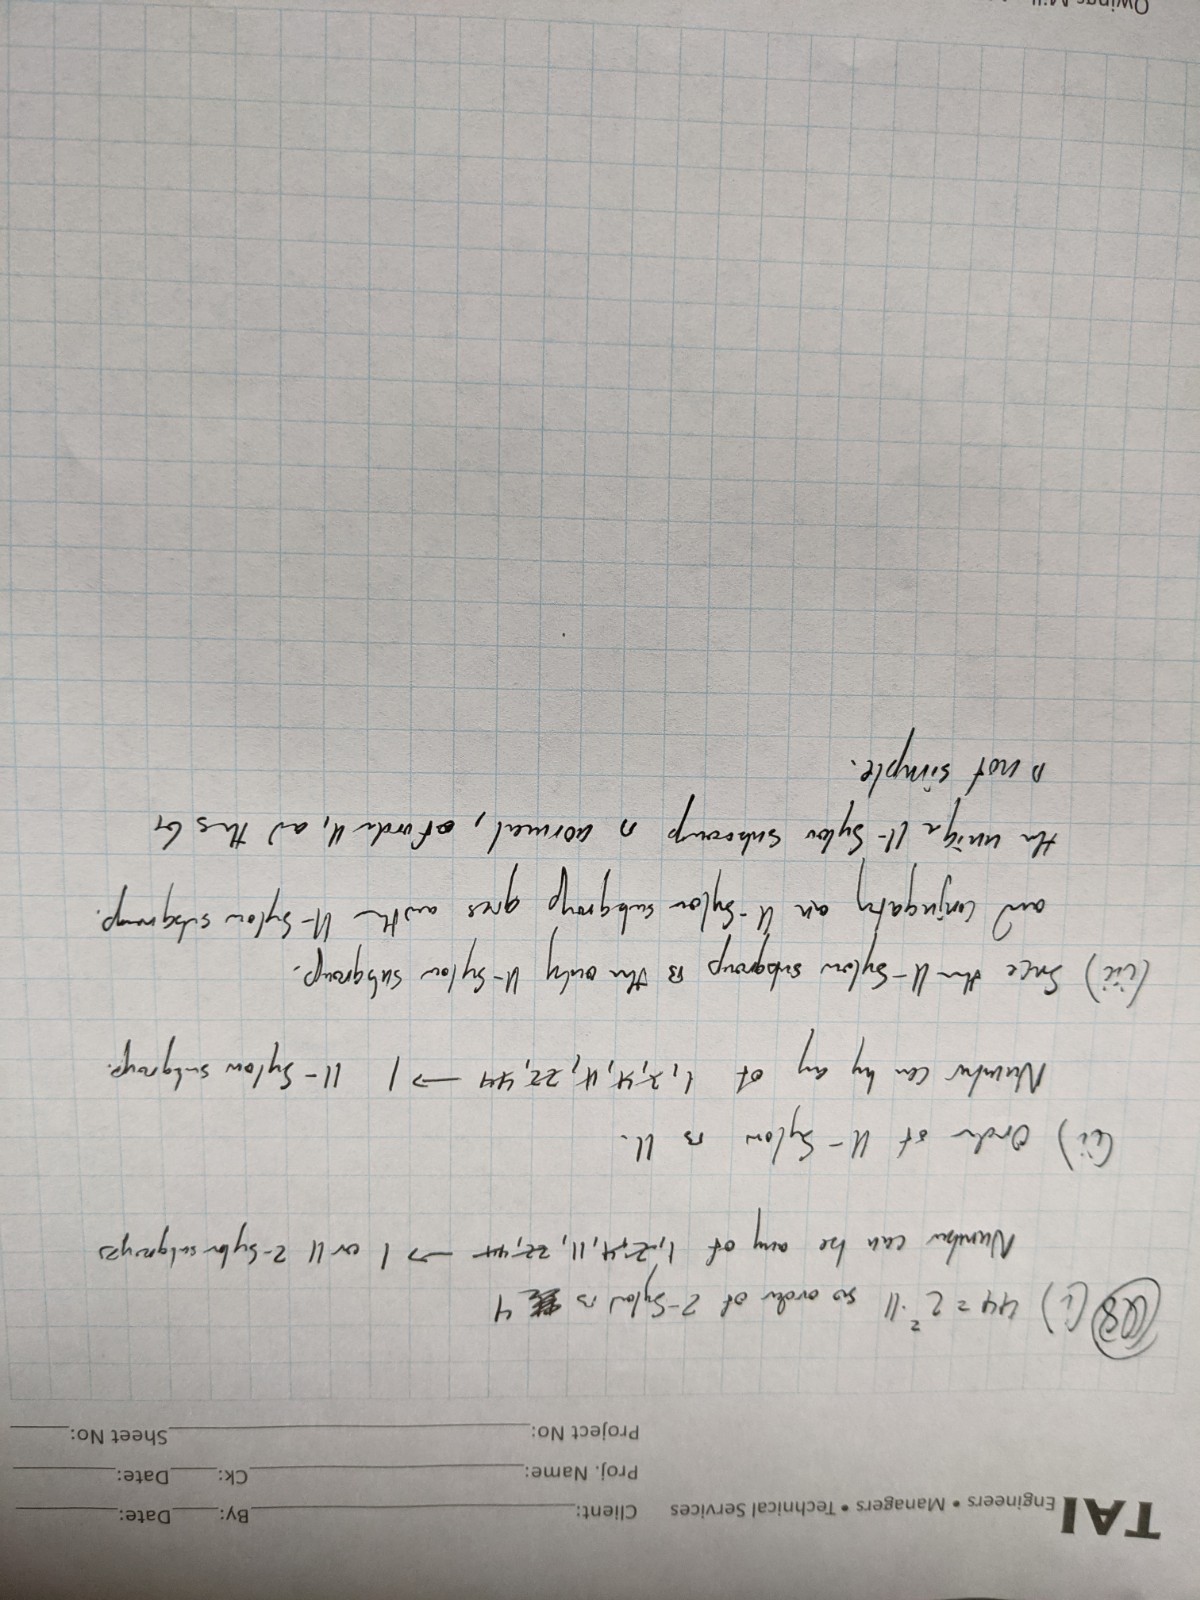 TAI Engineers • Managers • Technical Services
Client: By: Date:
Proj. Name: Ck: Date:
Project No: Sheet No:
Q8 (i) 44 = 2² · 11 so order of 2-Sylow is 4
Number can be any of 1, 2, 4, 11, 22, 44 → 1 or 11 2-Sylow subgroups
(ii) Order of 11-Sylow is 11.
Number can by any of 1, 2, 4, 11, 22, 44 → 1 11-Sylow subgroup.
(iii) Since the 11-Sylow subgroup is the only 11-Sylow subgroup.
and conjugating an 11-Sylow subgroup gives another 11-Sylow subgroup.
the unique 11-Sylow subgroup is normal, of order 11, and thus G
is not simple.
Owings Mill